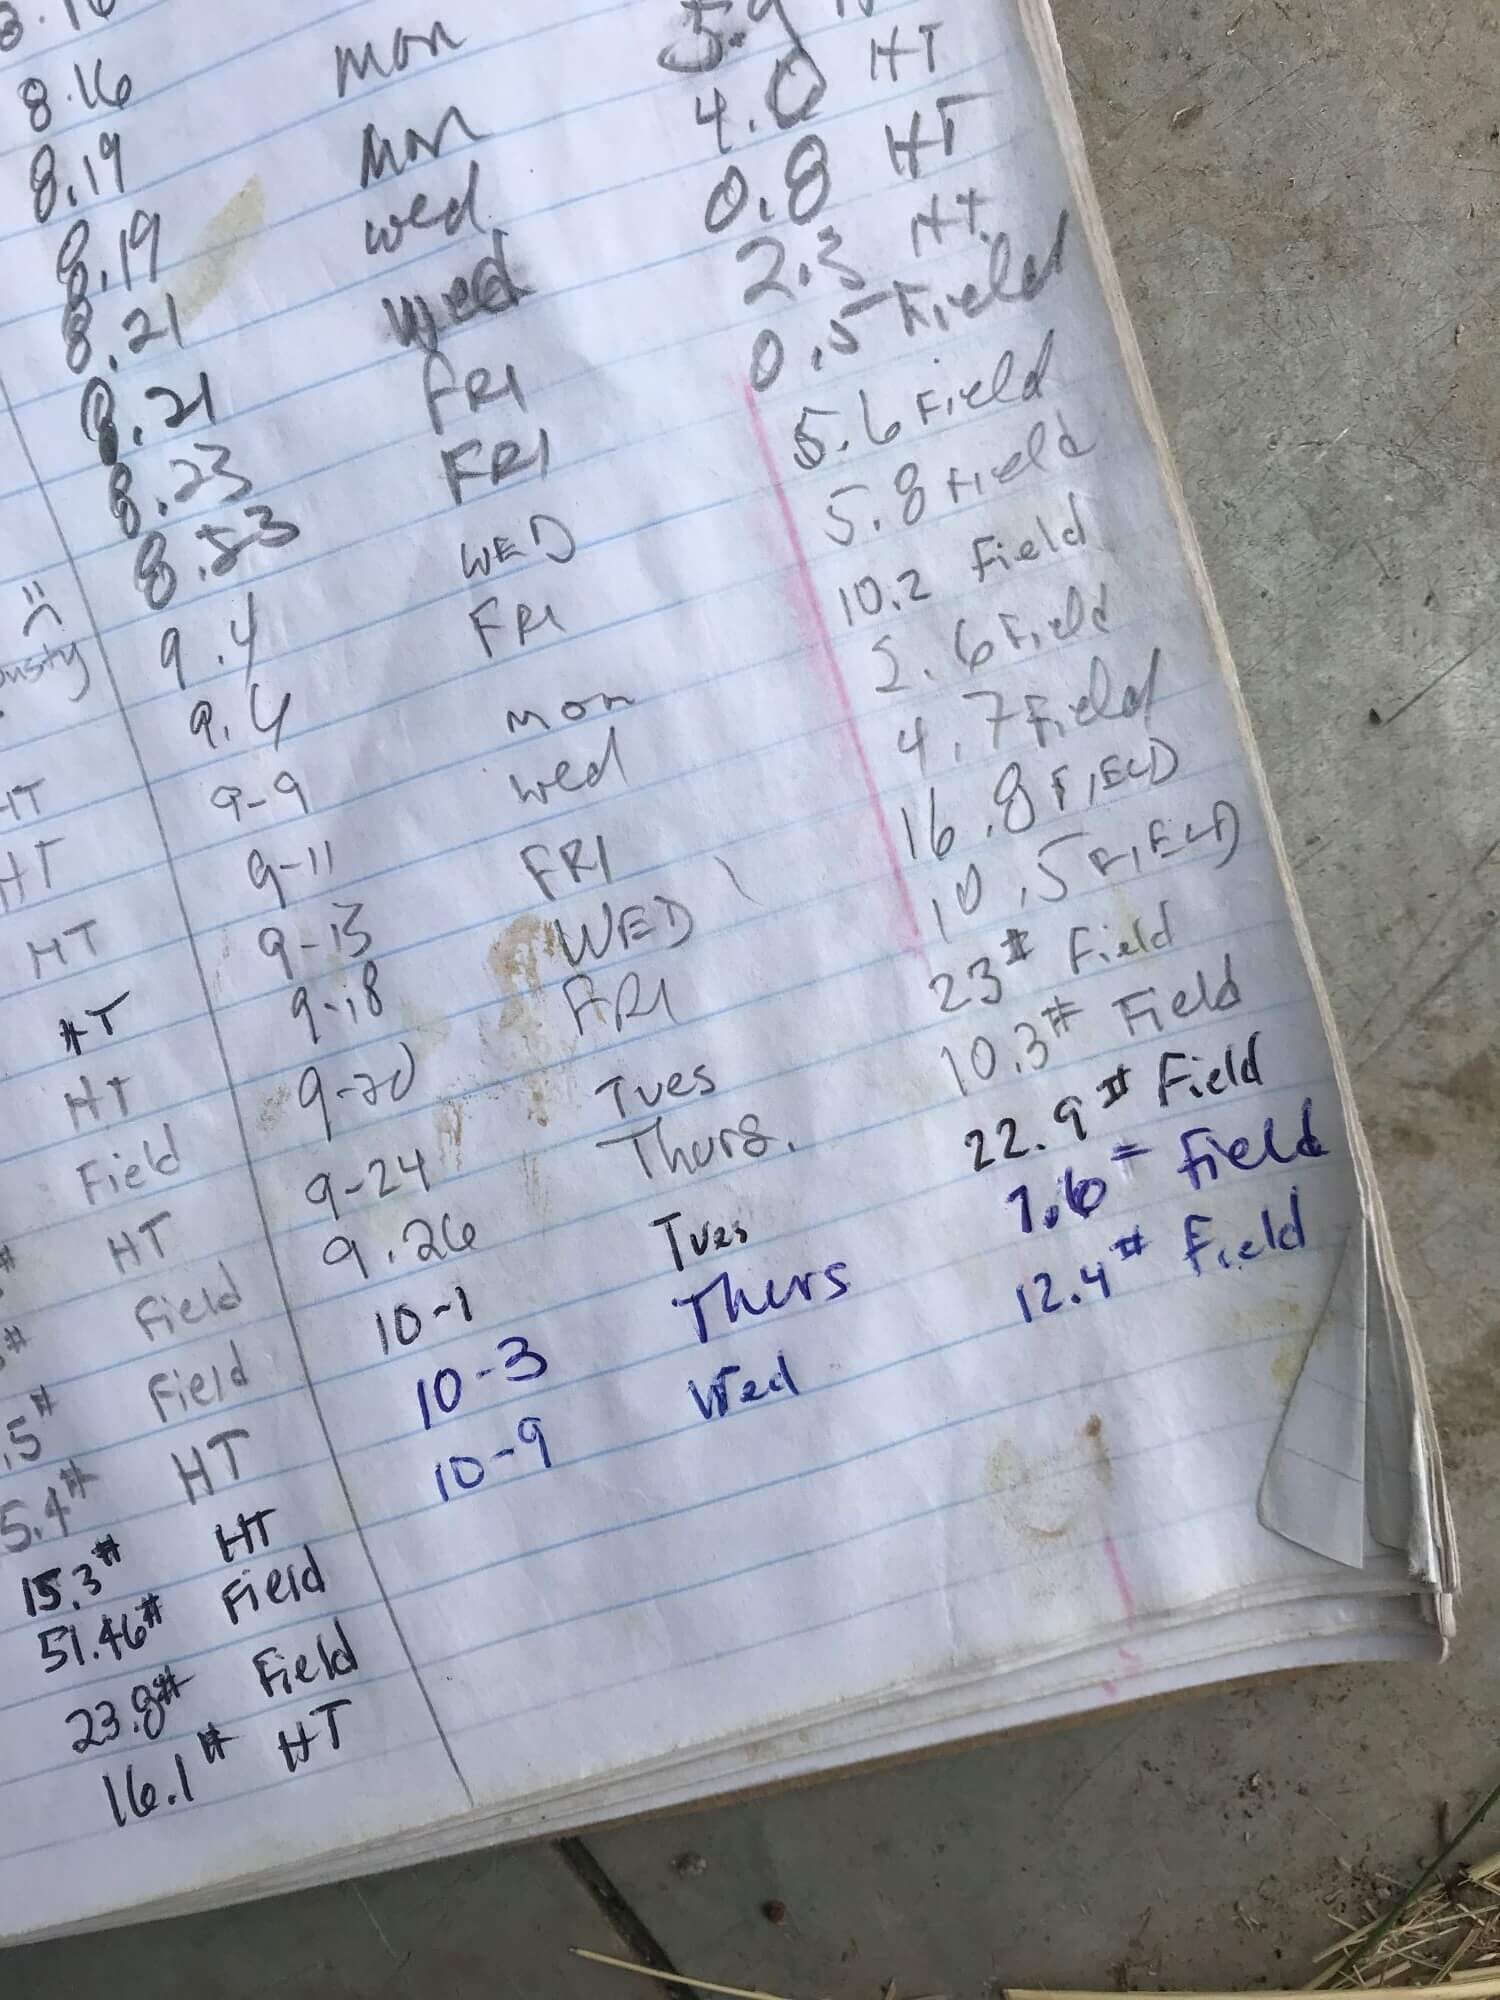 HT
HT
HT
HT
Field
HT
Field
.5# Field
5.4# HT
15.3# HT
51.46# Field
23.8# Field
16.1# HT
8.16
8.19 mon
8.19 mon 5.9
8.21 wed 4.0 HT
8.21 wed 0.8 HT
8.23 FRI 2.3 HT
8.23 FRI 0.5 Field
9.4 WED 5.6 Field
9.6 FRI 5.8 Field
9-9 mon 10.2 Field
9-11 wed Field
9-13 FRI 4.7 Field
9-18 WED 16.8 FIELD
9-20 FRI 10.5 FIELD
9-24 Tues 23# Field
9.26 Thurs. 10.3# Field
10-1 Tues 22.9# Field
10-3 Thurs 7.6 Field
10-9 Wed 12.4# Field